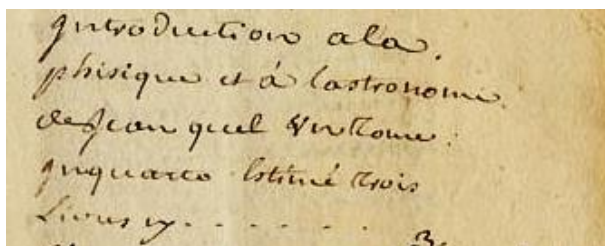 Introduction ala.
phisique et á lastronome.
de Jean quel Un Tome.
Inquarto Estimé trois
Livres cy . . . . . .
3